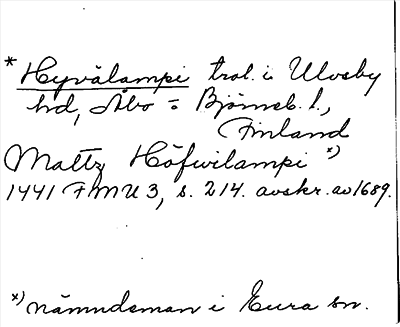 * Hyvälampi trol. i Ulvsby
hd, Åbo = Björneb. l.,
Finland
Mattz Höfwilampi x)
1441 FMU 3, s. 214. avskr. av 1689.
x) nämndeman i Eura sn.